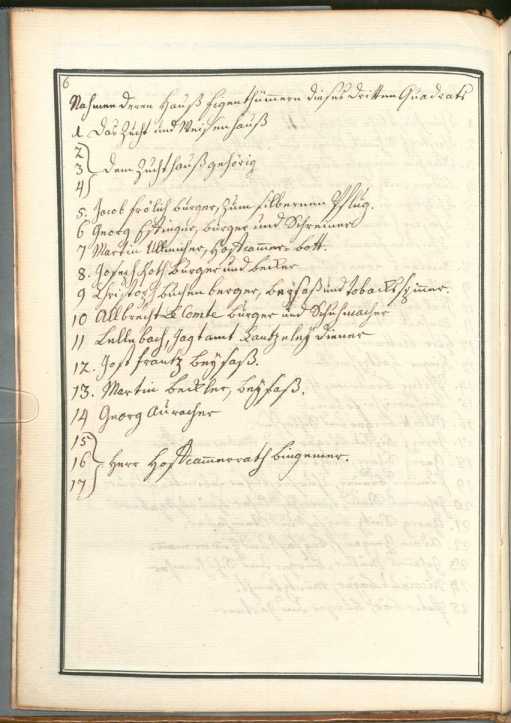 6
Nahmen deren Hauß Eigenthümmern dieses dritten Quadrats
1 Das Zucht und Weisenhauß
2
3 dem Zuchthauß gehörig
4
5. Jacob frölich burger, Zum silbernen Pflug.
6 Georg burger und Schreiner
7 Martin Ullmicher, Hoffcammer bott.
8. Joseph Hoth burger und becker
9 Christoph buchen berger, beysaß und tobackspinner.
10 Allbrecht le Comte burger und Schuhmacher
11 Lellebach, Jagtamt Cantzeley diener
12. Jost frantz beysaß.
13. Martin beckler, beysaß.
14 Georg Auracher
15
16 Herr Hoffcammerrath bingemer.
17